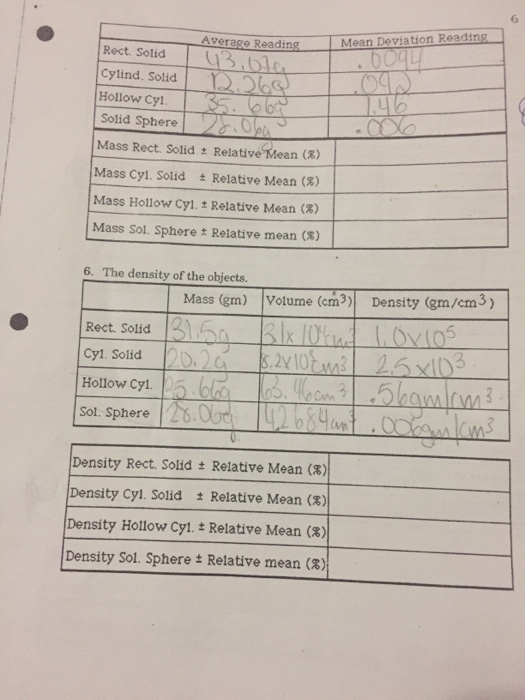 6
Average Reading Mean Deviation Reading
Rect. Solid 43.07g .0094
Cylind. Solid 12.26g .092
Hollow Cyl. 35.66g 1.46
Solid Sphere 28.06g .006
Mass Rect. Solid ± Relative Mean (%)
Mass Cyl. Solid ± Relative Mean (%)
Mass Hollow Cyl. ± Relative Mean (%)
Mass Sol. Sphere ± Relative mean (%)
6. The density of the objects.
Mass (gm) Volume (cm3) Density (gm/cm3)
Rect. Solid 31.5g 1.0x105
Cyl. Solid 20.2g 2.5x103
Hollow Cyl. 63.46cm3 .56gm/cm3
Sol. Sphere 28.06g .006gm/cm3
Density Rect. Solid ± Relative Mean (%)
Density Cyl. Solid ± Relative Mean (%)
Density Hollow Cyl. ± Relative Mean (%)
Density Sol. Sphere ± Relative mean (%)